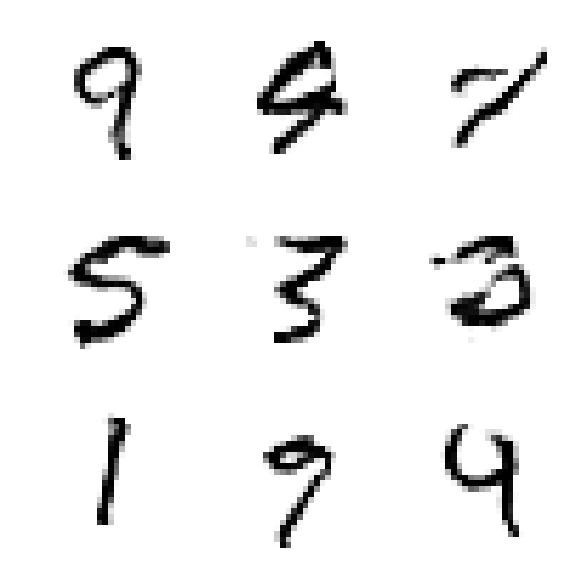 9 4 7
5 3 3
1 9 4